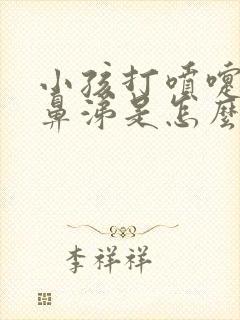 小孩打喷嚏
鼻涕是怎麽
李祥祥